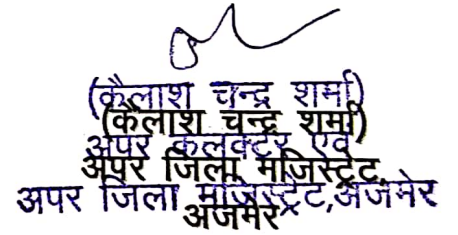 (कैलाश चन्द्र शर्मा)
(कैलाश चन्द्र शर्मा)
अपर कलक्टर एवं
अपर जिला मजिस्ट्रेट,
अपर जिला मजिस्ट्रेट,अजमेर
अजमेर